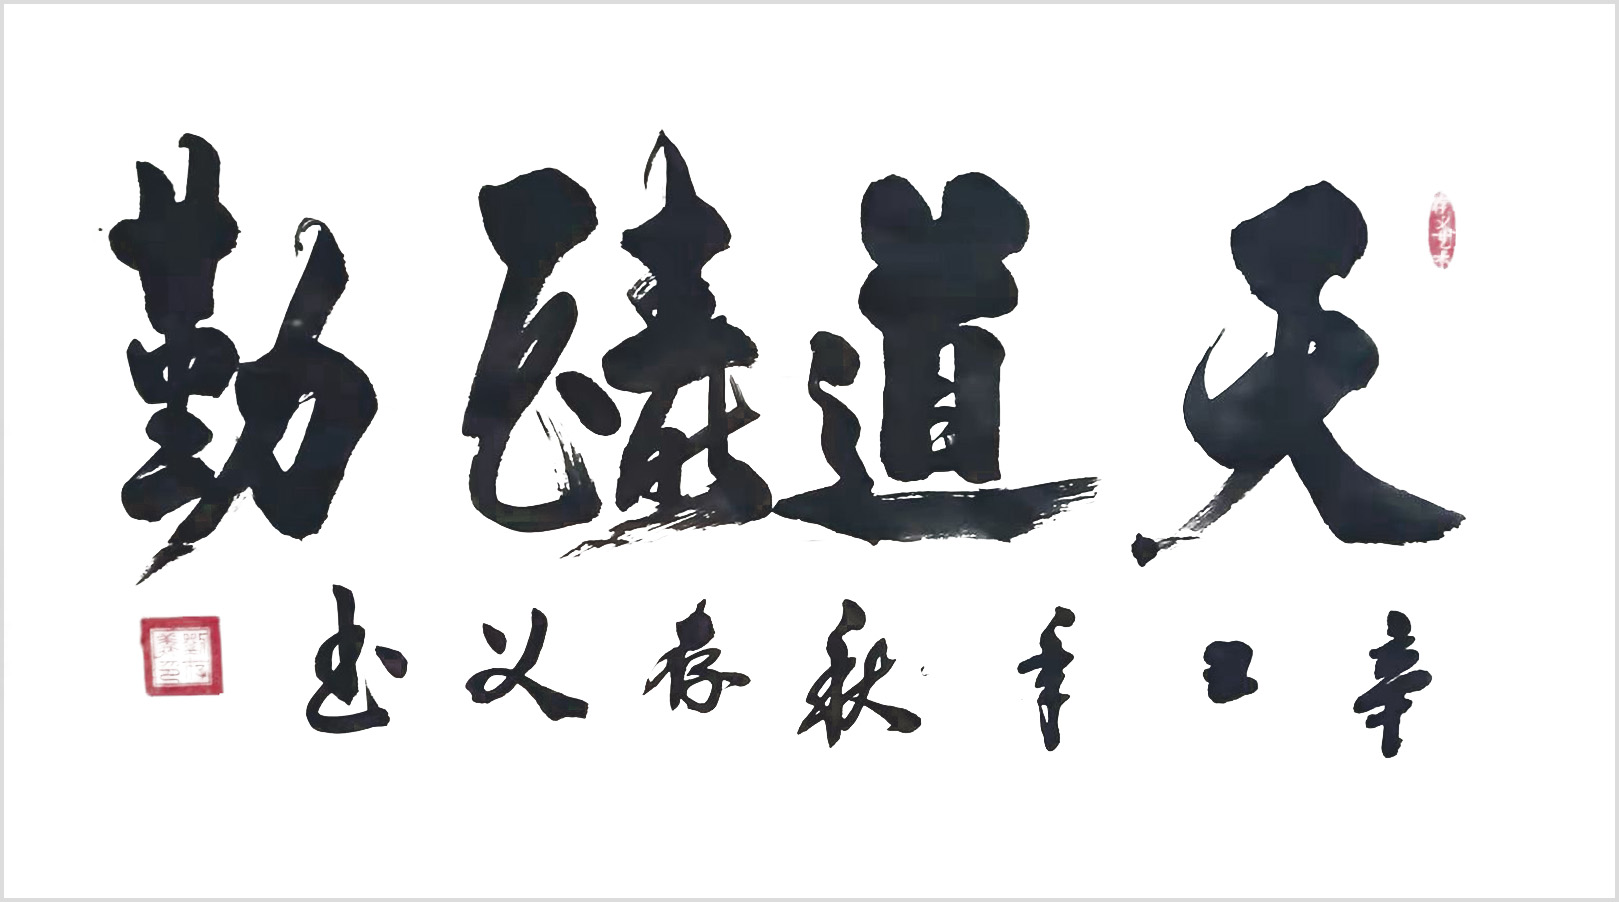 天道酬勤
辛丑年秋存义书